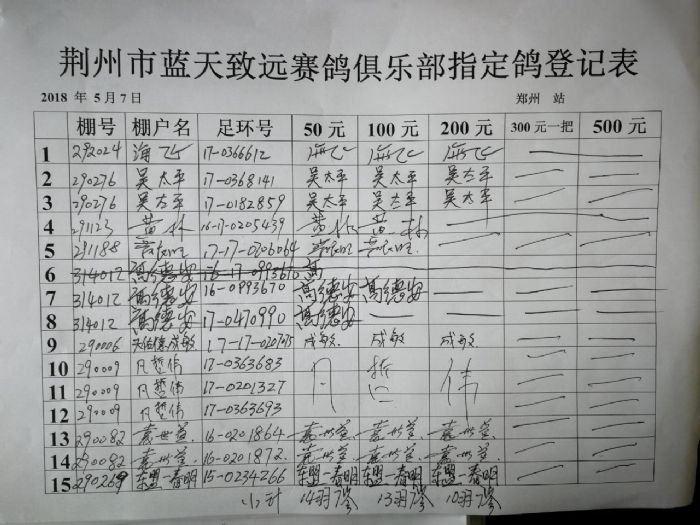 荆州市蓝天致远赛鸽俱乐部指定鸽登记表
2018 年 5 月 7 日 郑州 站
棚号 棚户名 足环号 50 元 100 元 200 元 300 元一把 500 元
1 292024 海飞 17-0366612 海飞 海飞 海飞
2 290276 吴太平 17-0368141 吴太平 吴太平 吴太平
3 290276 吴太平 17-0182859 吴太平 吴太平 吴太平
4 291123 黄林 16-17-0205439 黄林 黄林
5 291188 17-17-0206064
6 314012 高德安 16-17-0993670 高
7 314012 高德安 16-0893670 高德安 高德安
8 314012 高德安 17-0470990 高德安
9 290006 成敏 17-17-0207 成敏 成敏 成敏
10 290009 凡哲伟 17-0363683 凡 哲 伟
11 290009 凡哲伟 17-0201327
12 290009 凡哲伟 17-0363693
13 290082 袁世益 16-0201864 袁世益 袁世益 袁世益
14 290082 袁世益 16-0201872 袁世益 袁世益 袁世益
15 290269 东盟一春明 15-0234266 东盟一春明 东盟一春明 东盟一春明
小计 14羽 13羽 10羽